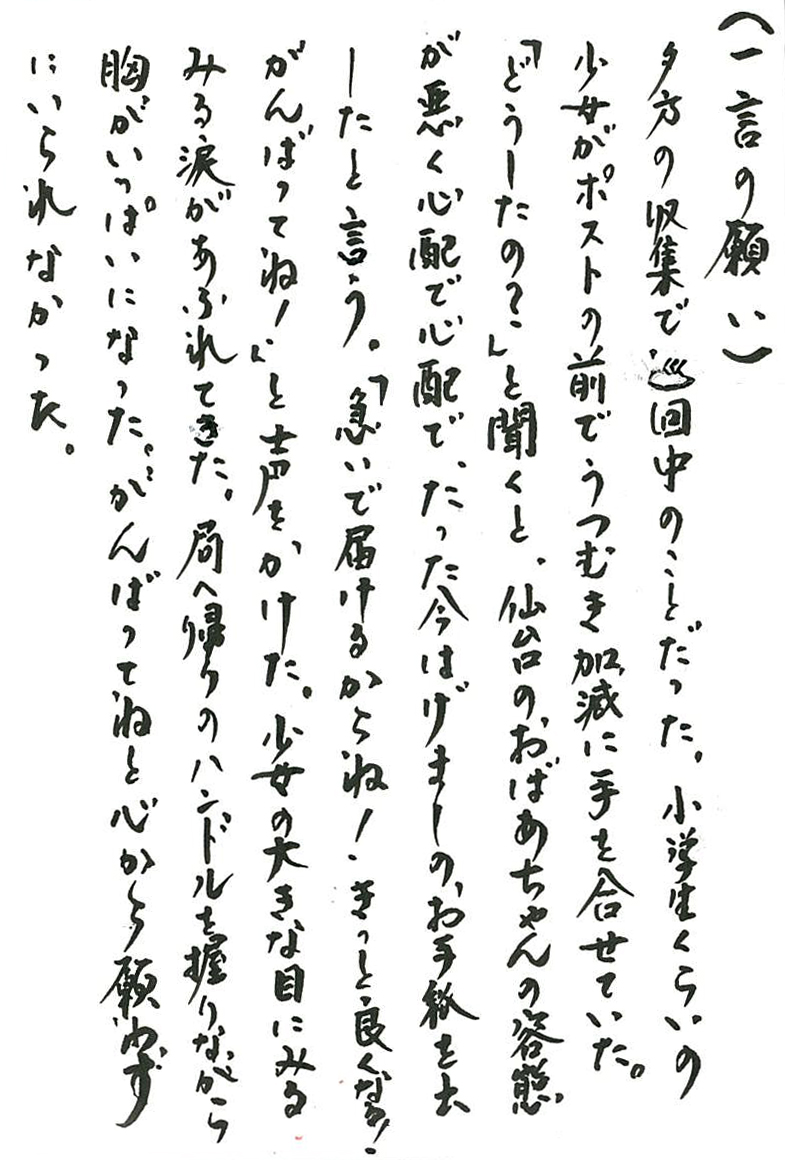 (一言の願い)
夕方の収集で巡回中のことだった。小学生くらいの
少女がポストの前でうつむき加減に手を合せていた。
「どうしたの？」と聞くと、仙台のおばあちゃんの容態
が悪く心配で心配で、たった今はげましの、お手紙を出
したと言う。「急いで届けるからね！きっと良くなる！
がんばってね！」と声をかけた。少女の大きな目にみる
みる涙があふれてきた。局へ帰りのハンドルを握りながら
胸がいっぱいになった。がんばってねと心から願わず
にいられなかった。